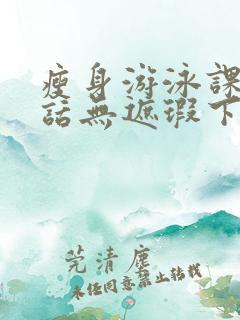 瘦身游泳課
話無遮瑕下
莞清塵
未经同意禁止转载